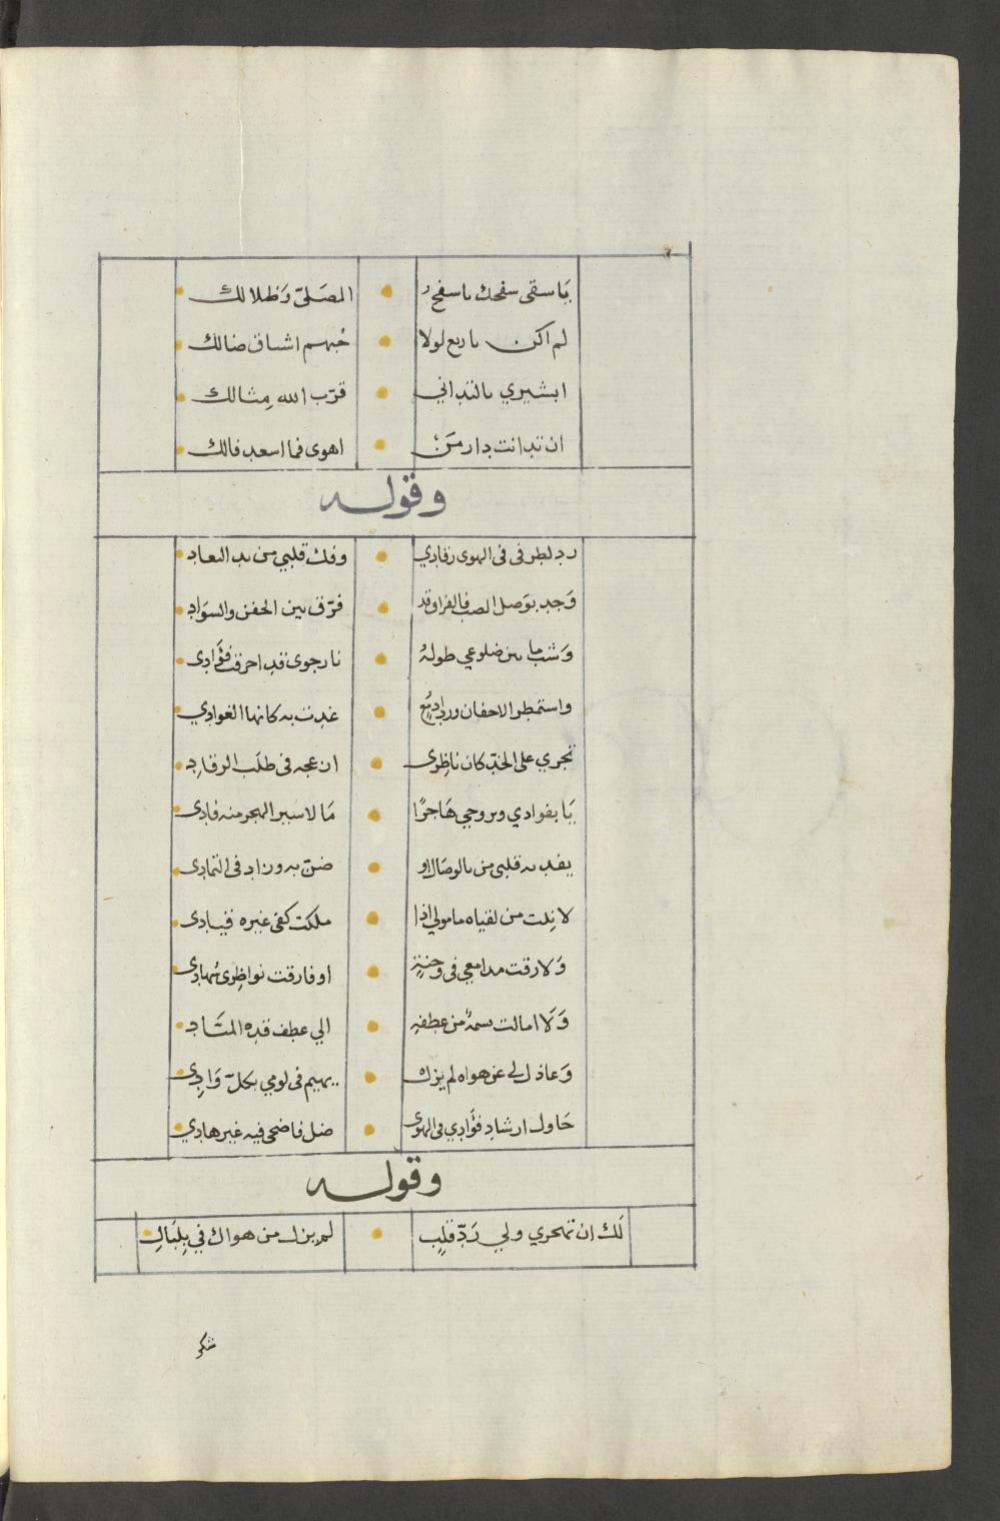 يَا سقى سفحك يا سفح المصَلىّ وَظلالك
لم اكن يا ربع لولا حُبهم اشتاق ضالك
ابشيري بالتداني قرّب الله مِثالك
ان تدانت دار مَنْ اهوى فما اسعد فالك
وقوله
رد لطرفى فى الهوى رقادي وفك قلبي من يد البعاد
وَجد بوَصل الصب فالفراق قد فرّق بين الجفن والسوَاد
وَشب ما بين ضلوعي طولهُ نار جوى قد احرقت فؤَادى
واستمطر الاجفان ورد ادمُعٍ غدت به كانها الغوادي
تجري على الخدّ كان ناظِرى ان عجه فى طلَب الرقادِ
يَا بفوادي وبروحي هَاجرًا مَا لاسير الهجر منه فادِى
يفديه قلبى من بالوصَال او ضنّ به وزاد فى التمادِى
لا نِلت من لقياه مامولي اذا ملكت كفى غيره قيادى
وَلا رقت مدامعي فى وجنةٍ او فارقت نواظِرى سُهادِى
وَلَا امالت نسمةٌ من عطفهِ الي عطف قدِه الميَّاد
وَعاذل لي عن هواه لم يزل يهيم فى لومي بكلّ وَادِى
حَاول ارشاد فؤَادِي فى الهوى ضل فاضحى فيه غير هادي
وقوله
لَك ان تهجري ولي رَدّ قلبٍ لم يزل من هواك في بِلبَالِ
شكر